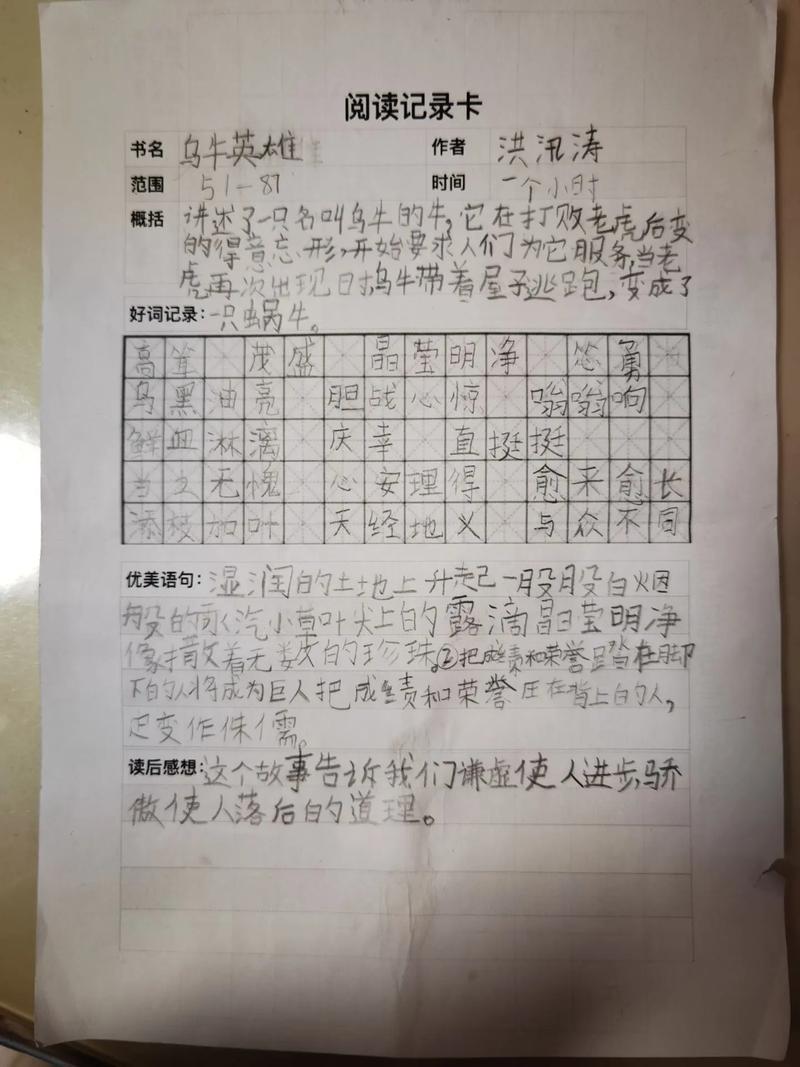 阅读记录卡
书名 乌牛英雄 作者 洪汛涛
范围 51-87 时间 一个小时
概括 讲述了一只名叫乌牛的牛,它在打败老虎后变
的得意忘形,开始要求人们为它服务,当老
虎再次出现时乌牛带着屋子逃跑,变成了
好词记录:一只蜗牛。
高耸 茂盛 晶莹明净 怂勇
乌黑油亮 胆战心惊 嗡嗡响
鲜血淋漓 庆幸 直挺挺
当之无愧 心安理得 愈来愈长
添枝加叶 天经地义 与众不同
优美语句:湿润的土地上升起一股股白烟
般的水汽小草叶尖上的露滴晶莹明净
像撒着无数的珍珠。②把成绩和荣誉踏在脚
下的人将成为巨人把成绩和荣誉压在背上的人,
定变作侏儒。
读后感想:这个故事告诉我们谦虚使人进步,骄
傲使人落后的道理。